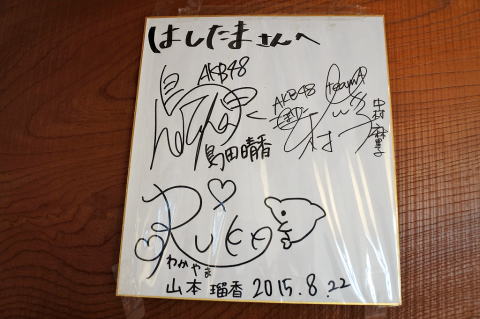 はしたまさんへ
AKB48
島田晴香
AKB48
teamA
中村麻里子
Ruka
わかやま
山本瑠香 2015.8.22